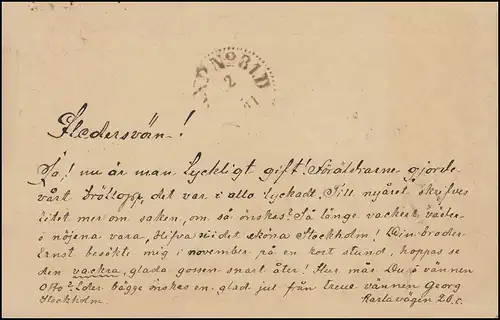 PKXP No 81 D
2
Hedersvän!
Ja, nu är man lyckligt gift! Föräldrarne gjorde
vårt bröllopp, det var i allo lyckadt. Till nyåret skrifves
litet mer om saken, om så önskes? Så länge vackert väder
i nöjena vara, skön Stockholm! Din broder
Ernst besökte mig i november på en kort stund, hoppas se
den vackra, glada gossen snart åter! Hur mås Du o vännen
Otto? Eder bägge önskes en glad jul från trene vännen Georg
Stockholm. Karlavägen 20. c.